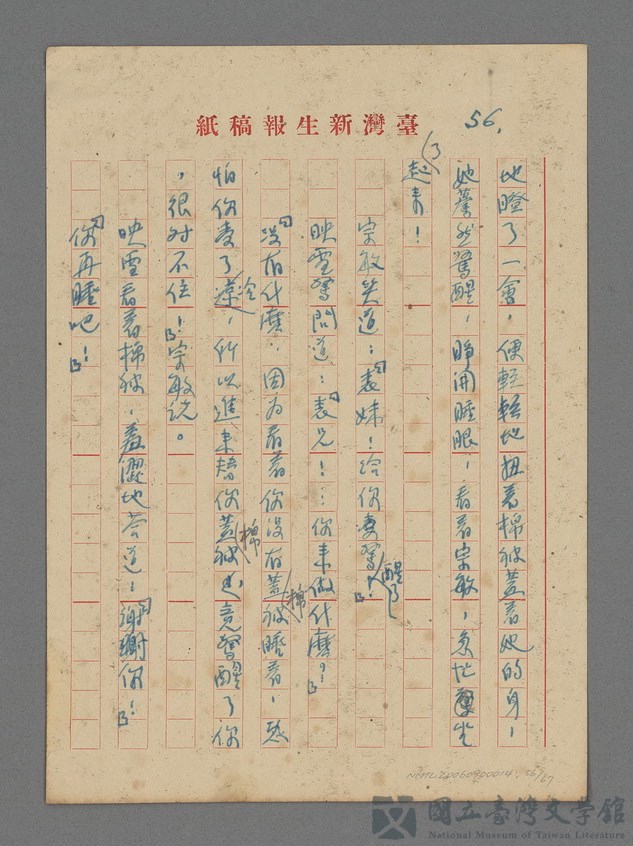 56.
臺灣新生報稿紙
地瞪了一會，便輕輕地扭着棉被蓋着她的身，
她驀然驚醒，睜開睡眼，看着宗敏，急忙坐
了起來！
宗敏笑道：「表妹！給你妻驚醒了！」
映雪驚問道：「表兄！…你來做什麼？」
「沒有什麼，因為看着你沒有蓋棉被睡着，恐
怕你受了冷，所以進來替你蓋棉被竟驚醒了你
，很对不住！」宗敏说。
映雪看着棉被，羞澀地答道：「謝謝你！」
「你再睡吧！」
NMTL20060900014 56/67
國立臺灣文學館
National Museum of Taiwan Literature